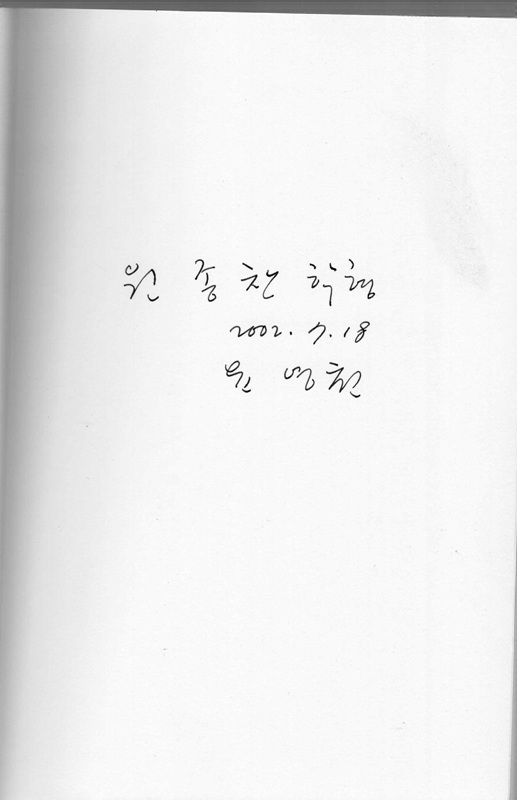 원 종 찬 학형
2002. 7. 18
윤 영천